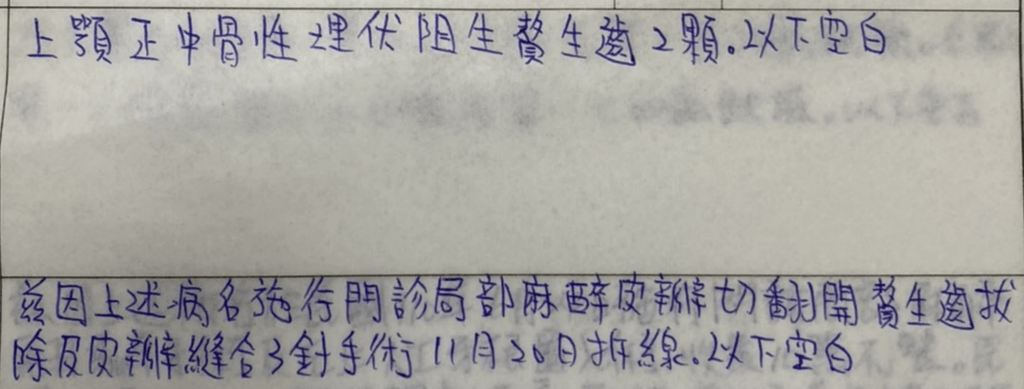 上顎正中骨性埋伏阻生贅生齒2顆。以下空白
茲因上述病名施行門診局部麻醉皮瓣切翻開贅生齒拔
除及皮瓣縫合3針手術11月20日拆線。以下空白